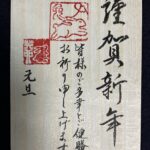 謹賀新年
皆様のご多幸とご健勝を
お祈り申し上げます
元旦